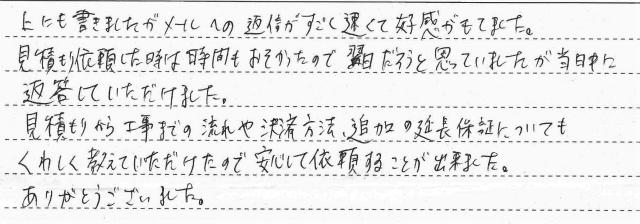 上にも書きましたがメールへの返信がすごく速くて好感がもてました。
見積もり依頼した時は時間もおそかったので翌日だろうと思っていましたが当日中に
返答していただけました。
見積もりから工事までの流れや決済方法、追加の延長保証についても
くわしく教えていただけたので安心して依頼することが出来ました。
ありがとうございました。